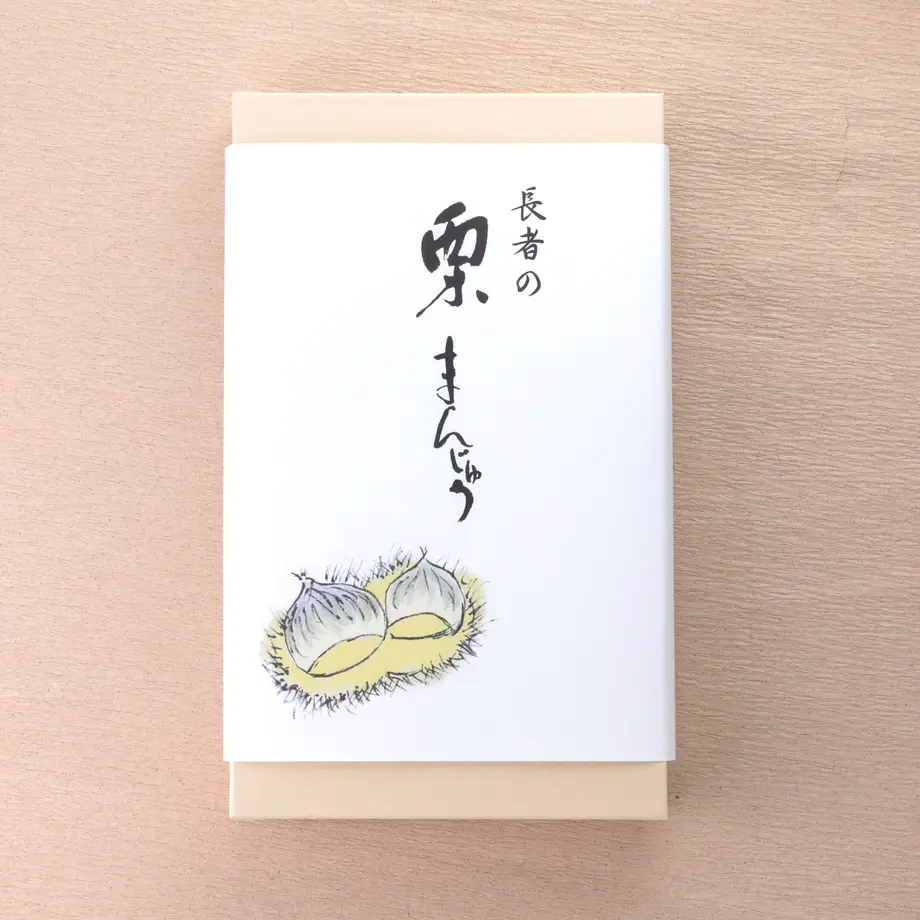 長者の
栗まんじゅう